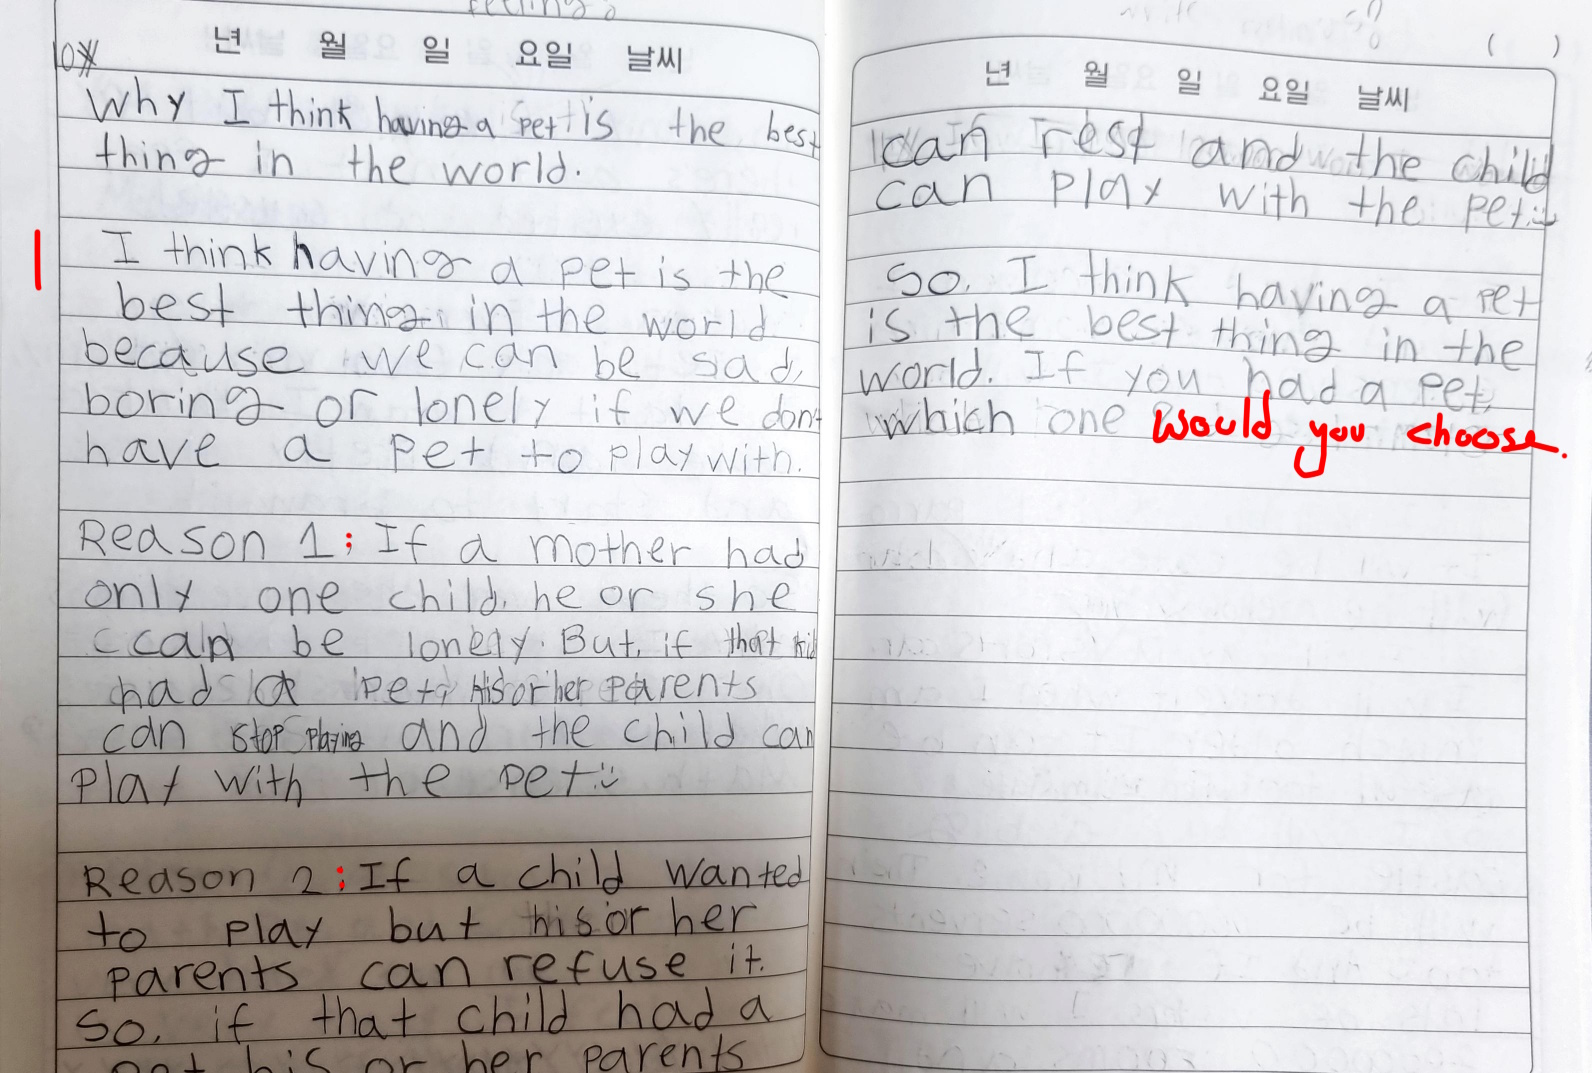 년 월 일 요일 날씨
Why I think having a pet is the best
thing in the world.
I think having a pet is the
best thing in the world
because we can be sad,
boring or lonely if we don't
have a pet to play with.
Reason 1; If a mother had
only one child, he or she
can be lonely. But, if that kid
had a pet, his or her parents
can stop playing and the child can
play with the pet.
Reason 2; If a child wanted
to play but his or her
parents can refuse it.
So, if that child had a
pet his or her parents
( )
년 월 일 요일 날씨
can rest and the child
can play with the pet.
So, I think having a pet
is the best thing in the
world. If you had a pet,
which one would you choose.